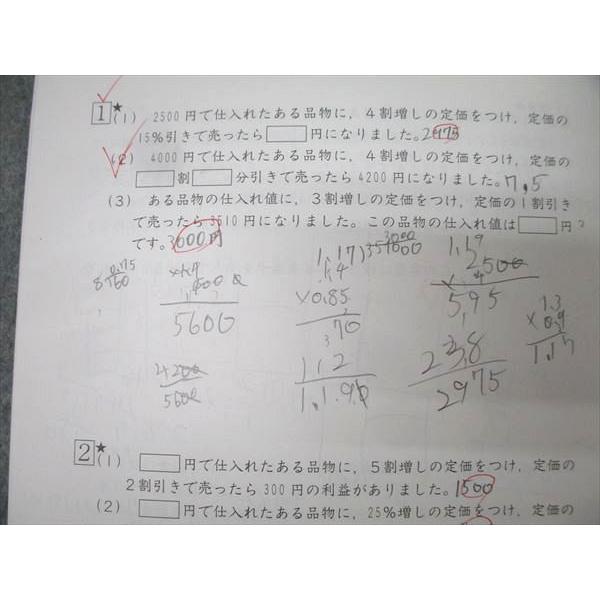 1★(1) 2500円で仕入れたある品物に，4割増しの定価をつけ，定価の
15％引きで売ったら□円になりました。2975
(2) 4000円で仕入れたある品物に，4割増しの定価をつけ，定価の
□割□分引きで売ったら4200円になりました。7,5
(3) ある品物の仕入れ値に，3割増しの定価をつけ，定価の1割引き
で売ったら3510円になりました。この品物の仕入れ値は□円
です。3000円
5600
4200
5600
1.4
×0.85
70
112
1.19
2500
5.95
23.8
2975
1.3
×0.9
1.17
2★(1) □円で仕入れたある品物に，5割増しの定価をつけ，定価の
2割引きで売ったら300円の利益がありました。1500
(2) □円で仕入れたある品物に，25％増しの定価をつけ，定価の